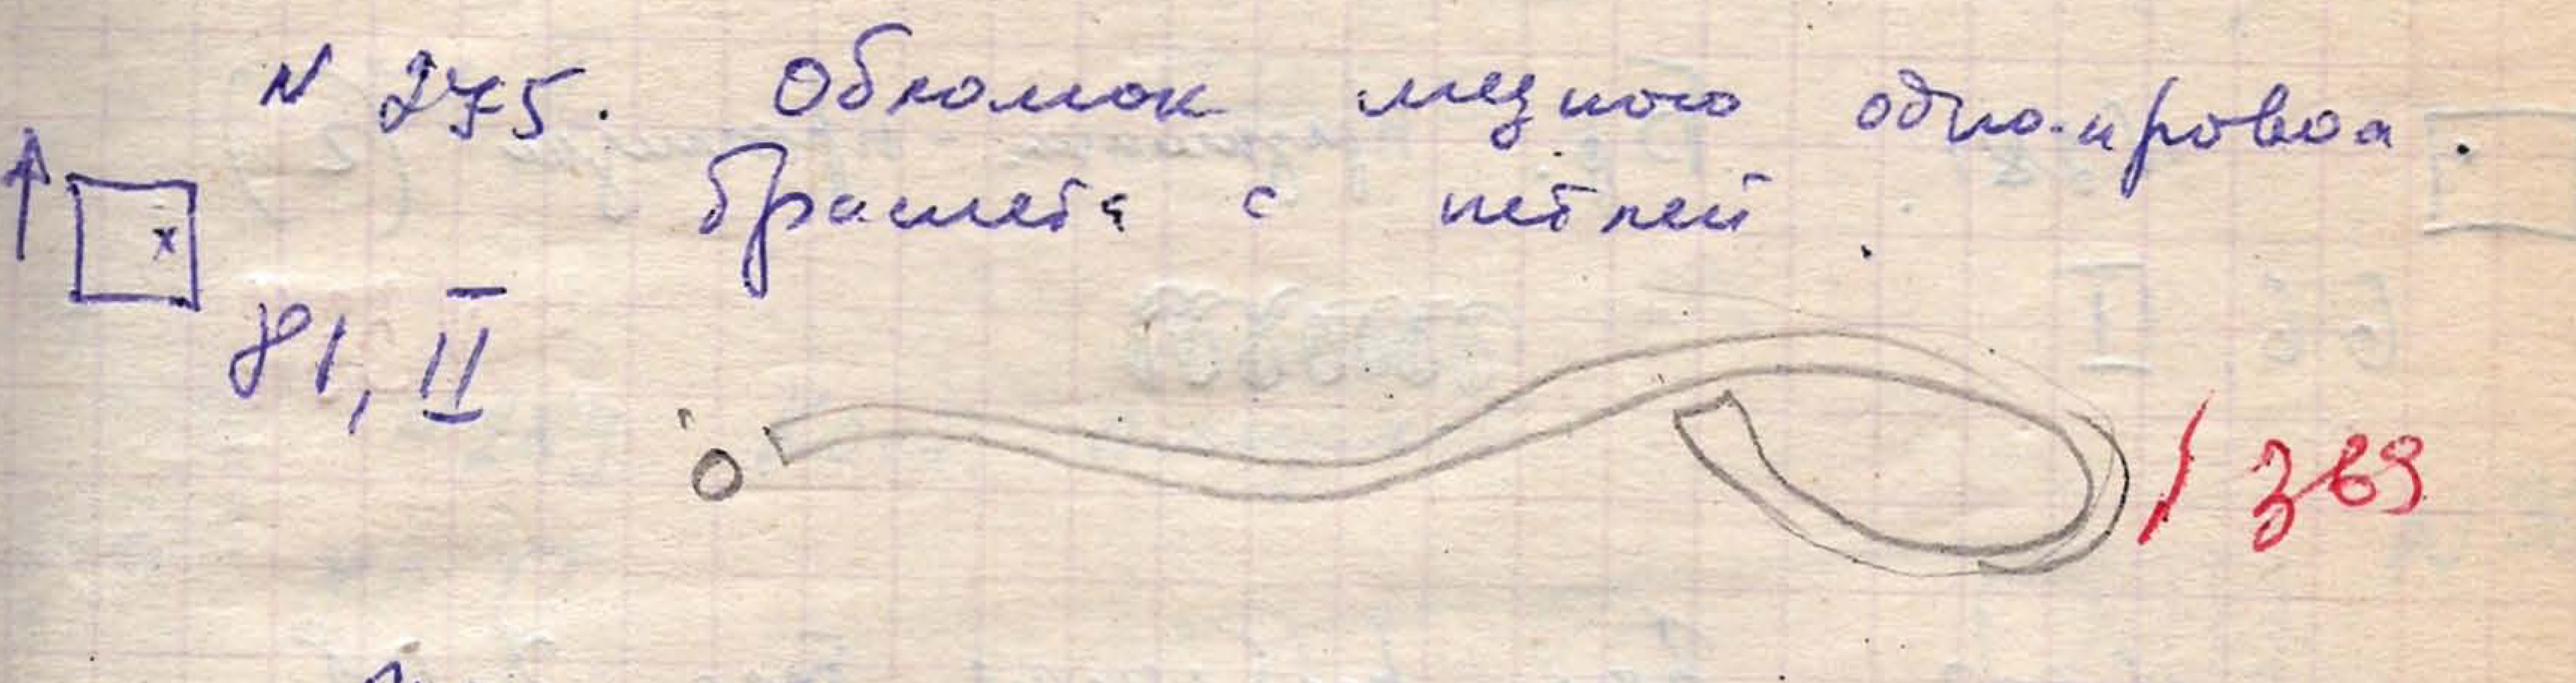 N 275. Обломок медного одно-провол.
браслета с петлей.
x
81, II
369